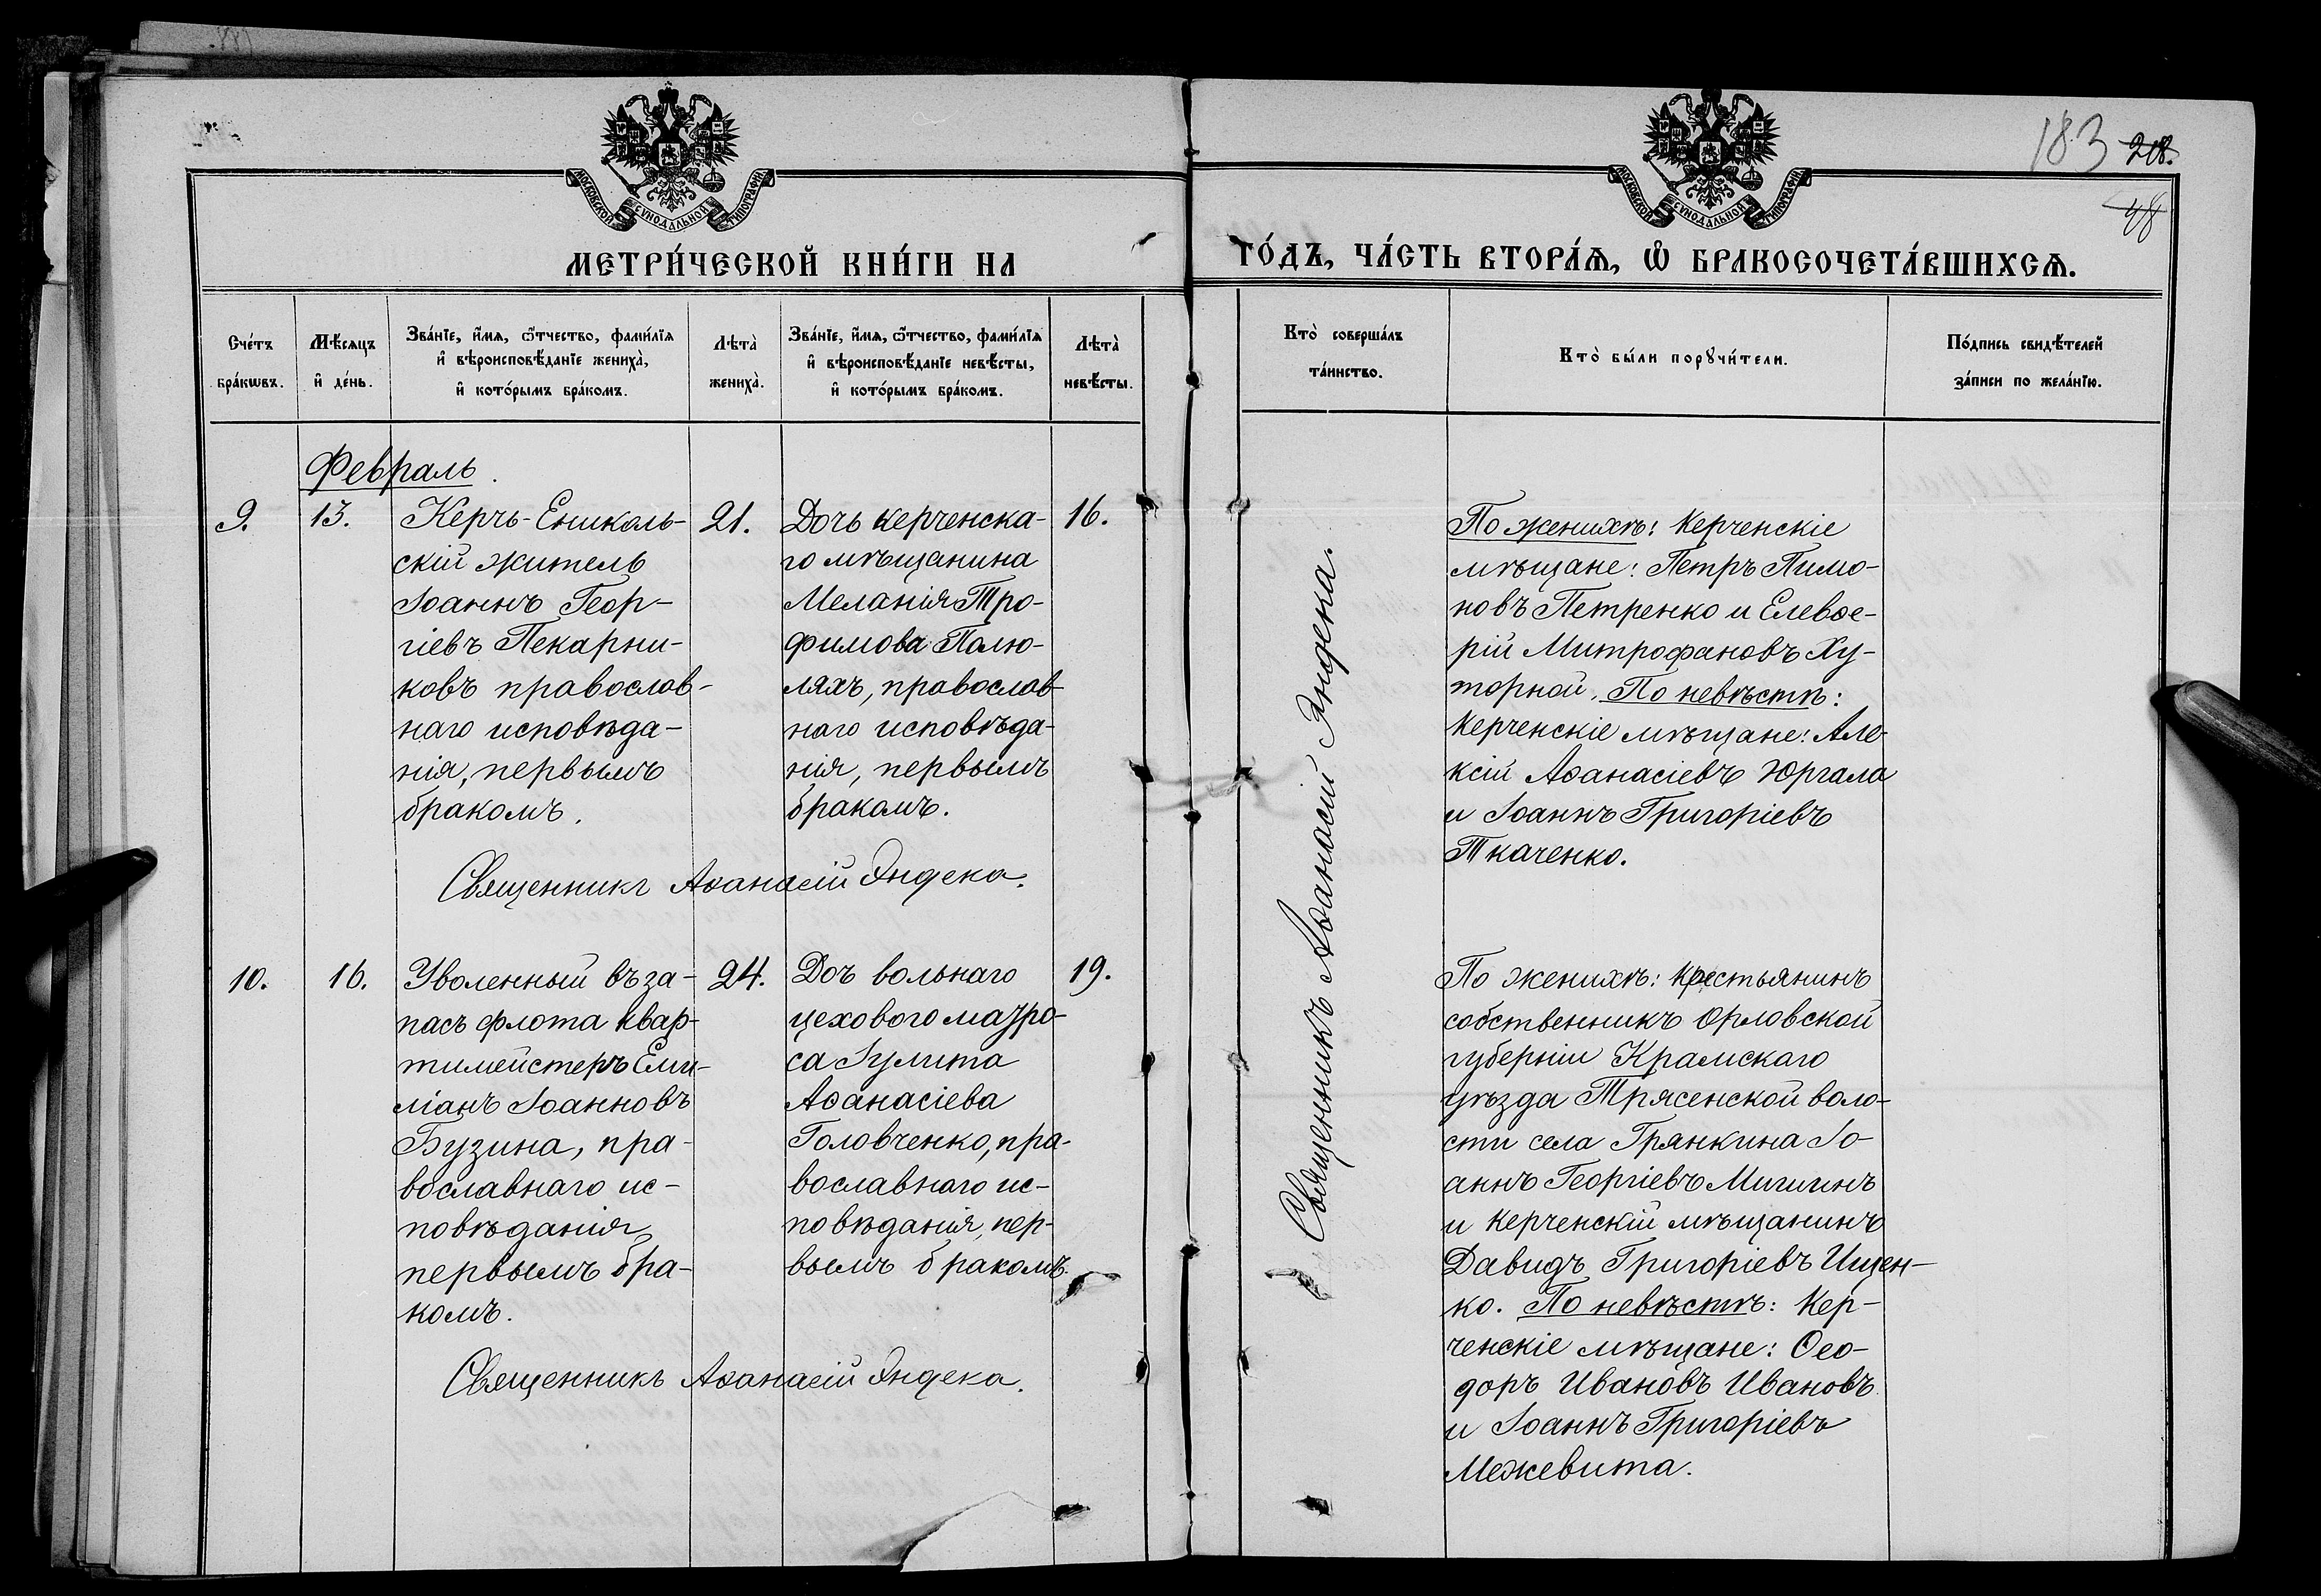 183 218.
48
МОСКОВСКОЙ СУНОДАЛЬНОЙ ТИПОГРАФІИ
МОСКОВСКОЙ СУНОДАЛЬНОЙ ТИПОГРАФІИ
МЕТРИ́ЧЕСКОЙ КНИ́ГИ НА
ГО́ДЪ, ЧА́СТЬ ВТОРА́Ѧ, Ѡ҆ БРАКОСОЧЕТА́ВШИХСѦ.
Сче́тъ
бра́кѡвъ.
Мѣ́сѧцъ
и҆ де́нь.
Зва́нїе, и҆́мѧ, ѻ҆́тчество, фами́лїѧ
и҆ вѣроисповѣ́данїе жениха̀,
и҆ кото́рымъ бра́комъ.
Лѣта̀
жениха̀.
Зва́нїе, и҆́мѧ, ѻ҆́тчество, фами́лїѧ
и҆ вѣроисповѣ́данїе невѣ́сты,
и҆ кото́рымъ бра́комъ.
Лѣта̀
невѣ́сты.
Кто̀ соверша́лъ
та́инство.
Кто̀ бы́ли порꙋчи́тели.
По́дпись свидѣ́телей
за́писи по жела́нїю.
Февраль.
9.
13.
Керчь-Ениколь-
скій житель
Іоаннъ Геор-
гіевъ Пекарни-
ковъ православ-
наго исповѣда-
нія, первымъ
бракомъ.
21.
Дочь керченска-
го мѣщанина
Меланія Тро-
фимова Полю-
ляхъ, православ-
наго исповѣда-
нія, первымъ
бракомъ.
16.
Священникъ Аѳанасій Яндека.
По женихѣ: Керченскіе
мѣщане: Петръ Пимо-
новъ Петренко и Елевѳе-
рій Митрофановъ Ху-
торной. По невѣстѣ:
Керченскіе мѣщане: Але-
ксій Аѳанасіевъ Юргала
и Іоаннъ Григоріевъ
Ткаченко.
Священникъ Аѳанасій Яндека.
10.
16.
Уволенный въ за-
пасъ флота квар-
тимейстеръ Еми-
ліанъ Іоанновъ
Бузина, пра-
вославнаго ис-
повѣданія,
первымъ бра-
комъ.
24.
Доч вольнаго
цехового матро-
са Іулита
Аѳанасіева
Головченко, пра-
вославнаго ис-
повѣданія, пер-
вымъ бракомъ.
19.
Священникъ Аѳанасій Яндека.
По женихѣ: крестьянинъ
собственникъ Орловской
губерніи Крамскаго
уѣзда Трясенской воло-
сти села Грянкина Іо-
аннъ Георгіевъ Мишинъ
и Керченскій мѣщанинъ
Давидъ Григоріевъ Ищен-
ко. По невѣстѣ: Кер-
ченскіе мѣщане: Ѳео-
доръ Ивановъ Ивановъ
и Іоаннъ Григоріевъ
Межевита.